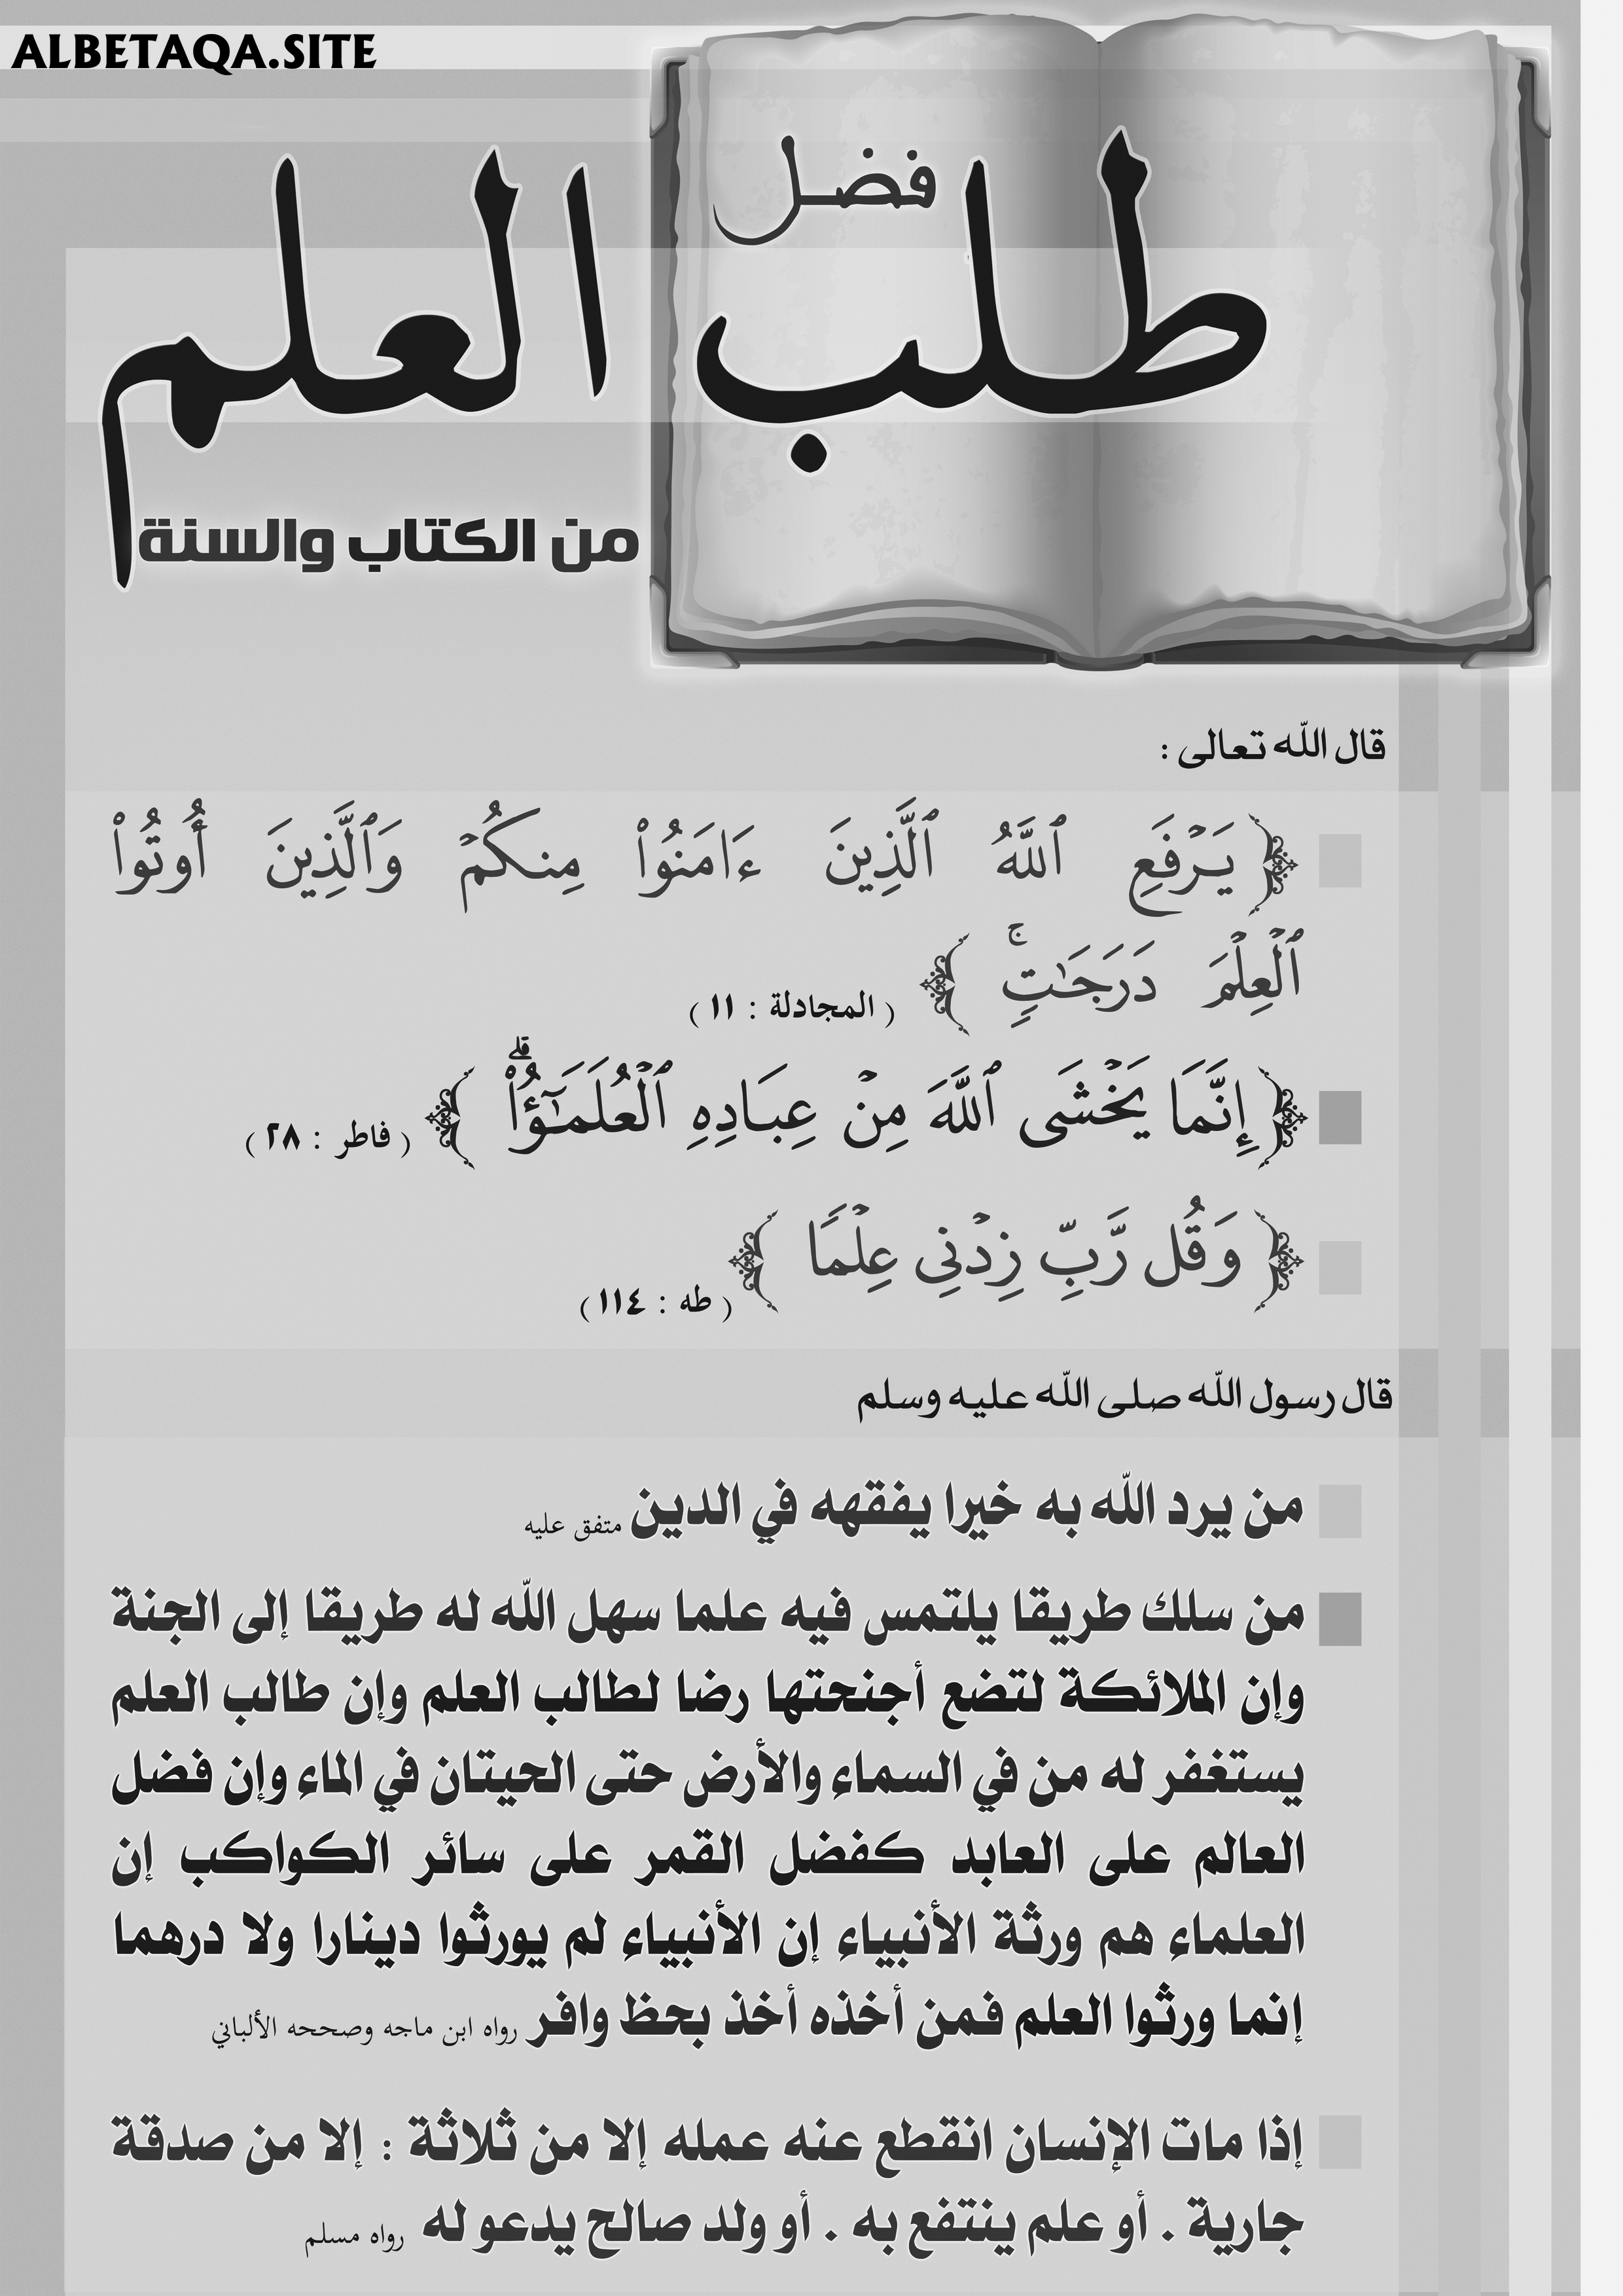 ALBETAQA.SITE
فضل
طلب العلم
من الكتاب والسنة
قال الله تعالى :
﴿ يَرْفَعِ ٱللَّهُ ٱلَّذِينَ ءَامَنُوا۟ مِنكُمْ وَٱلَّذِينَ أُوتُوا۟
ٱلْعِلْمَ دَرَجَـٰتٍ ۚ ﴾ ( المجادلة : ١١ )
﴿ إِنَّمَا يَخْشَى ٱللَّهَ مِنْ عِبَادِهِ ٱلْعُلَمَـٰٓؤُا۟ ۗ ﴾ ( فاطر : ٢٨ )
﴿ وَقُل رَّبِّ زِدْنِى عِلْمًا ﴾ ( طه : ١١٤ )
قال رسول الله صلى الله عليه وسلم
من يرد الله به خيرا يفقهه في الدين متفق عليه
من سلك طريقا يلتمس فيه علما سهل الله له طريقا إلى الجنة
وإن الملائكة لتضع أجنحتها رضا لطالب العلم وإن طالب العلم
يستغفر له من في السماء والأرض حتى الحيتان في الماء وإن فضل
العالم على العابد كفضل القمر على سائر الكواكب إن
العلماء هم ورثة الأنبياء إن الأنبياء لم يورثوا دينارا ولا درهما
إنما ورثوا العلم فمن أخذه أخذ بحظ وافر رواه ابن ماجه وصححه الألباني
إذا مات الإنسان انقطع عنه عمله إلا من ثلاثة : إلا من صدقة
جارية . أو علم ينتفع به . أو ولد صالح يدعو له رواه مسلم